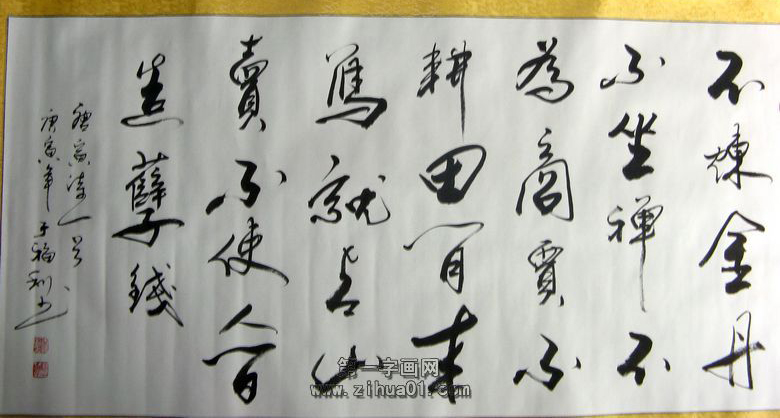 不煉金丹
不坐禪不
為商賈不
耕田閒来
寫就青山
賣不使人間
造孽錢
唐寅诗一首
庚寅年 福利书
第一字画网
www.zihua01.com